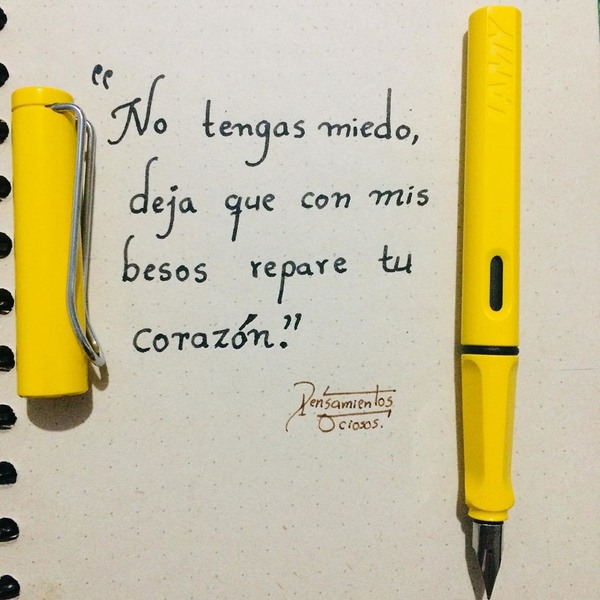 "No tengas miedo,
deja que con mis
besos repare tu
corazón."
Pensamientos
Ociosos.
LAMY